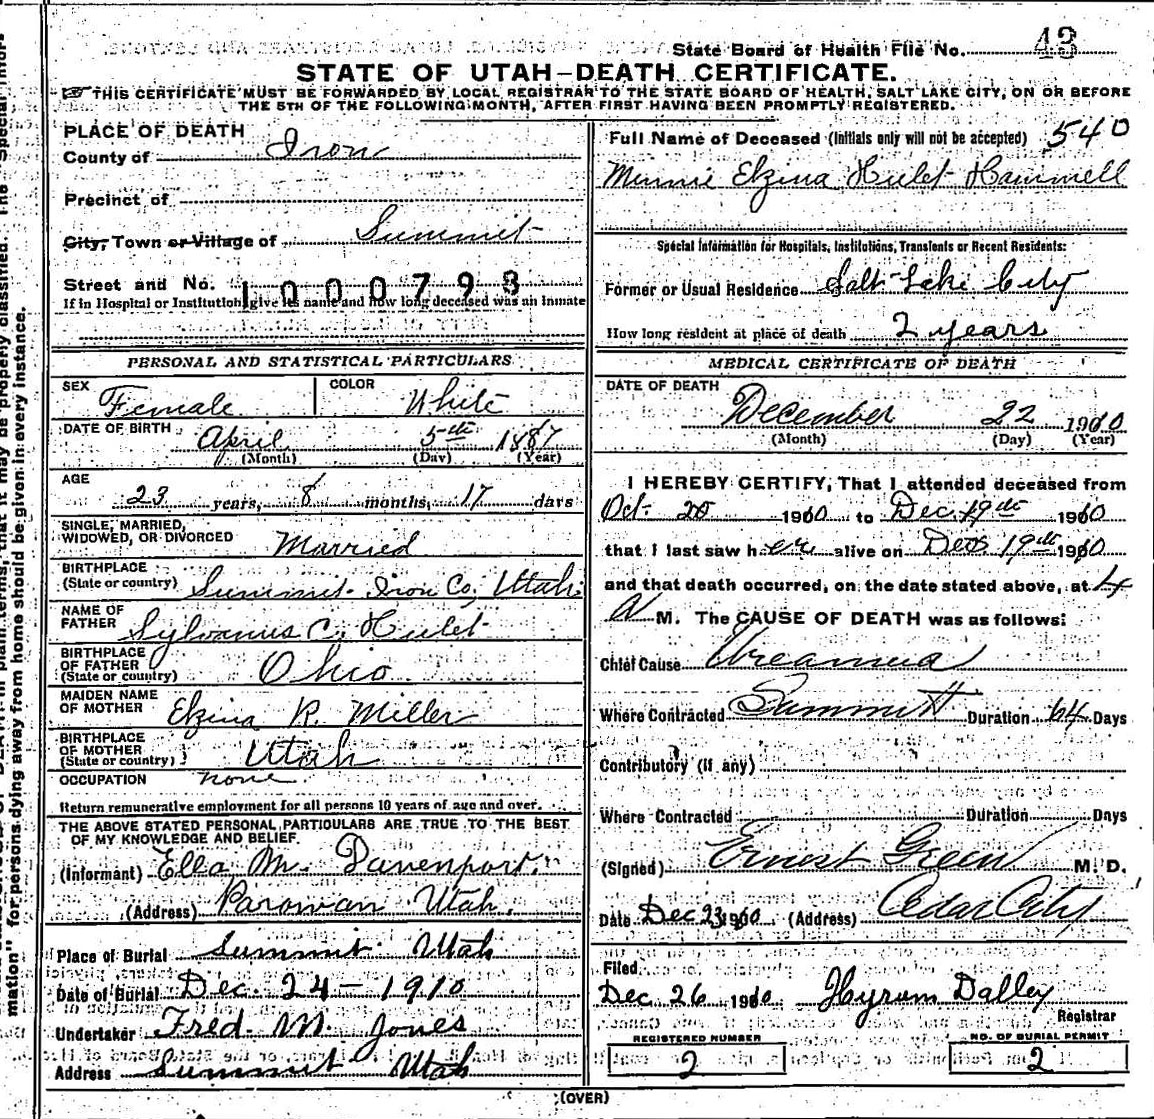 State Board of Health File No. 43
STATE OF UTAH—DEATH CERTIFICATE.
THIS CERTIFICATE MUST BE FORWARDED BY LOCAL REGISTRAR TO THE STATE BOARD OF HEALTH, SALT LAKE CITY, ON OR BEFORE
THE 5TH OF THE FOLLOWING MONTH, AFTER FIRST HAVING BEEN PROMPTLY REGISTERED.
PLACE OF DEATH
County of Iron
Precinct of
City, Town or Village of Summit
Street and No.
1000793
If in Hospital or Institution, give its name and how long deceased was an inmate
PERSONAL AND STATISTICAL PARTICULARS
SEX Female COLOR White
DATE OF BIRTH April 5th 1887
(Month) (Day) (Year)
AGE
23 years, 8 months, 17 days
SINGLE, MARRIED,
WIDOWED, OR DIVORCED Married
BIRTHPLACE
(State or country) Summit Iron Co, Utah.
NAME OF
FATHER Sylvanus C. Hulet
BIRTHPLACE
OF FATHER
(State or country) Ohio
MAIDEN NAME
OF MOTHER Elzina R. Miller
BIRTHPLACE
OF MOTHER
(State or country) Utah
OCCUPATION none
Return remunerative employment for all persons 10 years of age and over.
THE ABOVE STATED PERSONAL PARTICULARS ARE TRUE TO THE BEST
OF MY KNOWLEDGE AND BELIEF.
(Informant) Ella M. Davenport.
(Address) Parowan Utah.
Place of Burial Summit Utah
Date of Burial Dec. 24 - 1910
Undertaker Fred M. Jones
Address Summit Utah
Full Name of Deceased (Initials only will not be accepted) 540
Minnie Elzina Hulet Hammell
Special Information for Hospitals, Institutions, Transients or Recent Residents:
Former or Usual Residence Salt Lake City
How long resident at place of death 2 years
MEDICAL CERTIFICATE OF DEATH
DATE OF DEATH
December 22 1910
(Month) (Day) (Year)
I HEREBY CERTIFY, That I attended deceased from
Oct. 20 1910 to Dec. 19th 1910
that I last saw her alive on Dec 19th 1910
and that death occurred, on the date stated above, at 4
A M. The CAUSE OF DEATH was as follows:
Chief Cause Ureamia
Where Contracted Summitt Duration 64 Days
Contributory (if any)
Where Contracted Duration Days
(Signed) Ernest Green M. D.
Date Dec 23 1910 (Address) Cedar City
Filed
Dec 26 1910 Hyrum Dalley
Registrar
REGISTERED NUMBER
2
NO. OF BURIAL PERMIT
2
(OVER)
mation" for persons dying away from home should be given in every instance.